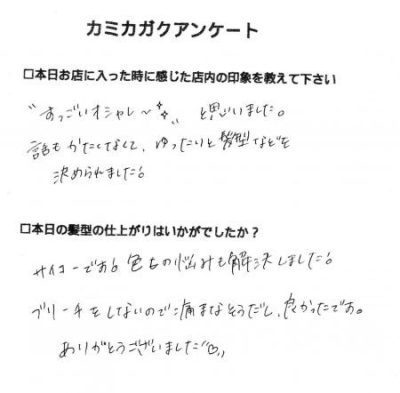 カミカガクアンケート
□本日お店に入った時に感じた店内の印象を教えて下さい
〝すっごいオシャレ〜〟と思いました。
話もかたくなくて、ゆったりと髪型などを
決められました。
□本日の髪型の仕上がりはいかがでしたか？
サイコーです! 色もの悩みも解決しました!
ブリーチをしないので痛まなそうだし、良かったです。
ありがとうございました♡